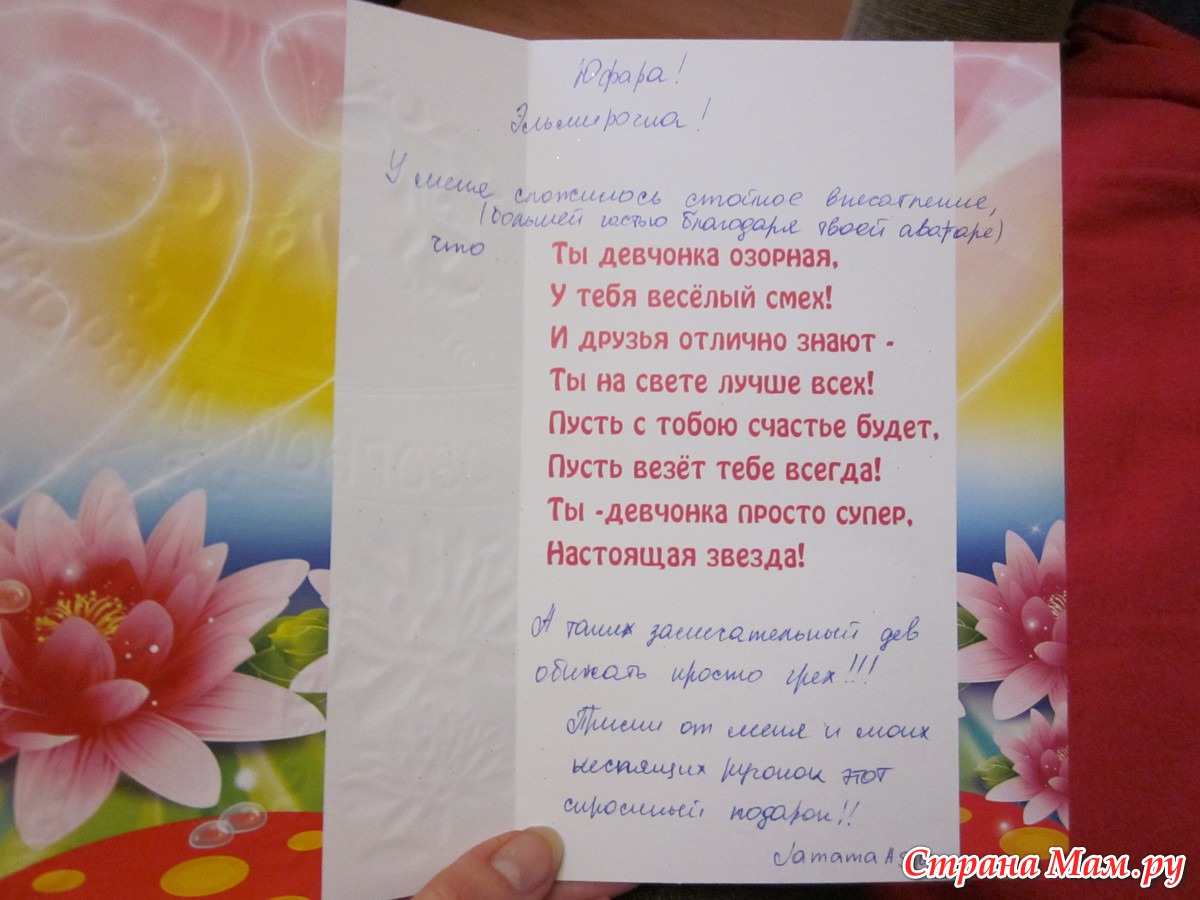 Юфара!
Эльмирочка!
У меня сложилось стойкое впечатление,
(большей частью благодаря твоей аватаре)
что
Ты девчонка озорная,
У тебя весёлый смех!
И друзья отлично знают -
Ты на свете лучше всех!
Пусть с тобою счастье будет,
Пусть везёт тебе всегда!
Ты -девчонка просто супер,
Настоящая звезда!
А таких замечательный дев
обижать просто грех!!!
Прими от меня и моих
неспящих ручонок этот
скромный подарок!!
Страна Мам.ру